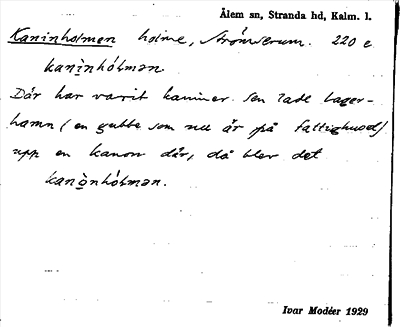 Ålem sn, Stranda hd, Kalm. l.
Kaninholmen holme, Strömserum. 220 e
kanìnhólmən
Där har varit kaniner. Sen lade Lager-
hamn (en gubbe som nu är på fattighuset)
upp en kanon där, då blev det
kanònhólmən.
Ivar Modéer 1929